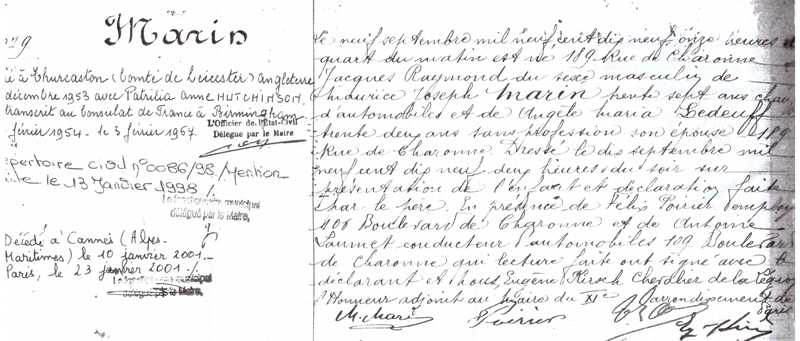 Marin
à Thurcaston (Comté de Leicester) Angleterre
décembre 1953 avec Patricia Anne HUTCHINSON.
transcrit au Consulat de France à Birmingham
février 1954 - le 3 février 1967
L'Officier de l'État-Civil
Délégué par le Maire
Répertoire civil n° 0086/98. Mention
le 13 Janvier 1998
Le fonctionnaire municipal
délégué par le Maire,
Décédé à Cannes (Alpes-
Maritimes) le 10 janvier 2001.
Paris, le 23 janvier 2001
Le fonctionnaire municipal
délégué par le Maire,
Le neuf septembre mil neuf cent dix neuf, onze heures
quart du matin est né 189 Rue de Charonne
Jacques Raymond du sexe masculin de
Maurice Joseph Marin trente sept ans
d'automobiles et de Angèle Maria Ledeuff
trente deux ans sans profession son épouse 189
Rue de Charonne. Dressé le dix septembre mil
neuf cent dix neuf deux heures du soir sur
présentation de l'enfant et déclaration faite
par le père. En présence de Félix Poirier employé
106 Boulevard de Charonne et de Antoine
conducteur d'automobiles 109 Boulevard
de Charonne qui lecture faite ont signé avec le
déclarant et Nous, Eugène Hirsch Chevalier de la Légion
d'Honneur adjoint au Maire du XIe arrondissement de
Paris
M. Marin Poirier